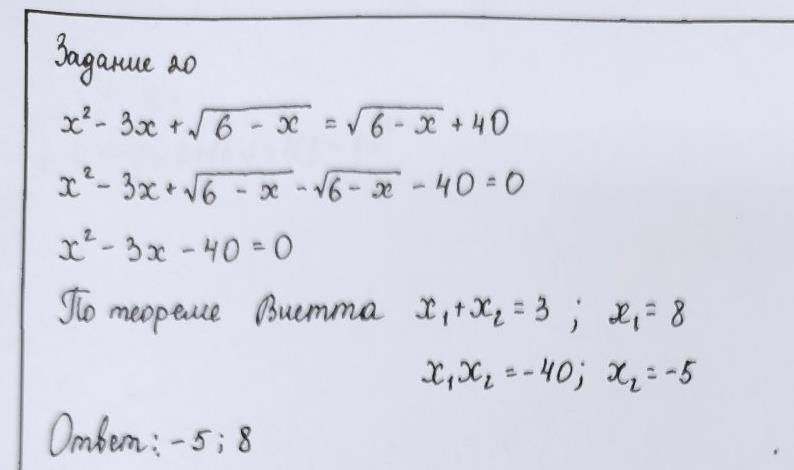 Задание 20
x² - 3x + √(6 - x) = √(6 - x) + 40
x² - 3x + √(6 - x) - √(6 - x) - 40 = 0
x² - 3x - 40 = 0
По теореме Виетта x₁ + x₂ = 3 ; x₁ = 8
x₁x₂ = -40; x₂ = -5
Ответ: -5; 8